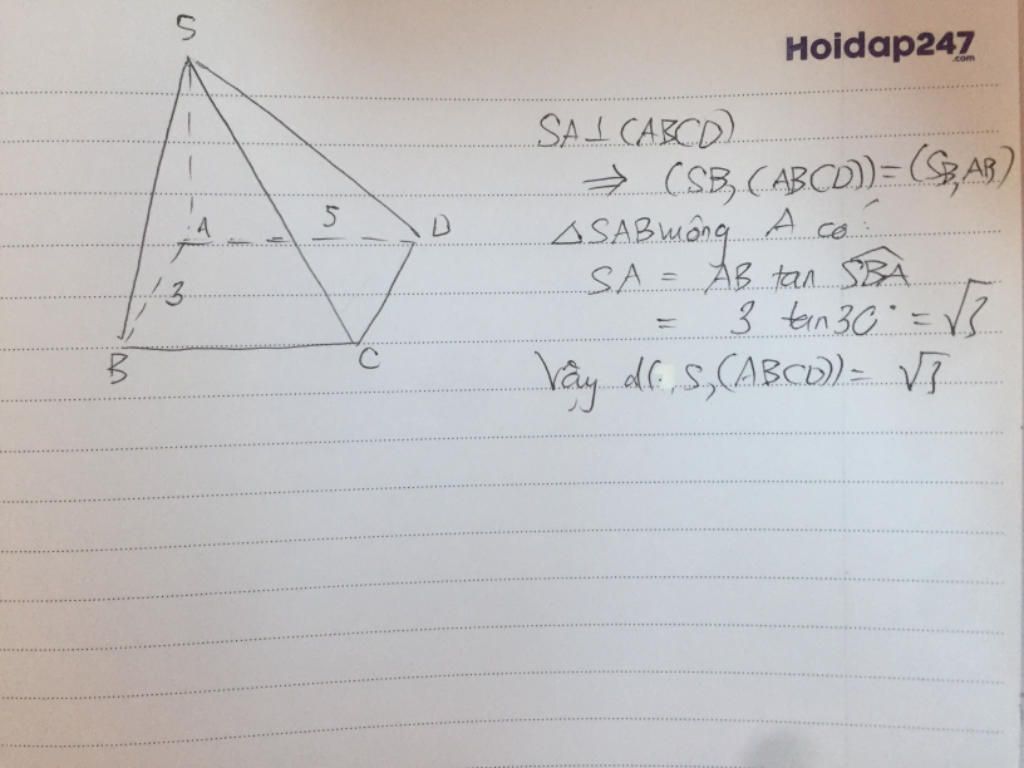 S
Hoidap247
.com
SA⊥(ABCD)
⇒ (SB, (ABCD)) = (SB, AB)
A 5 D
△SAB vuông A có:
3
SA = AB tan SBA
= 3 tan30° = √3
B C
Vậy d(S, (ABCD)) = √3